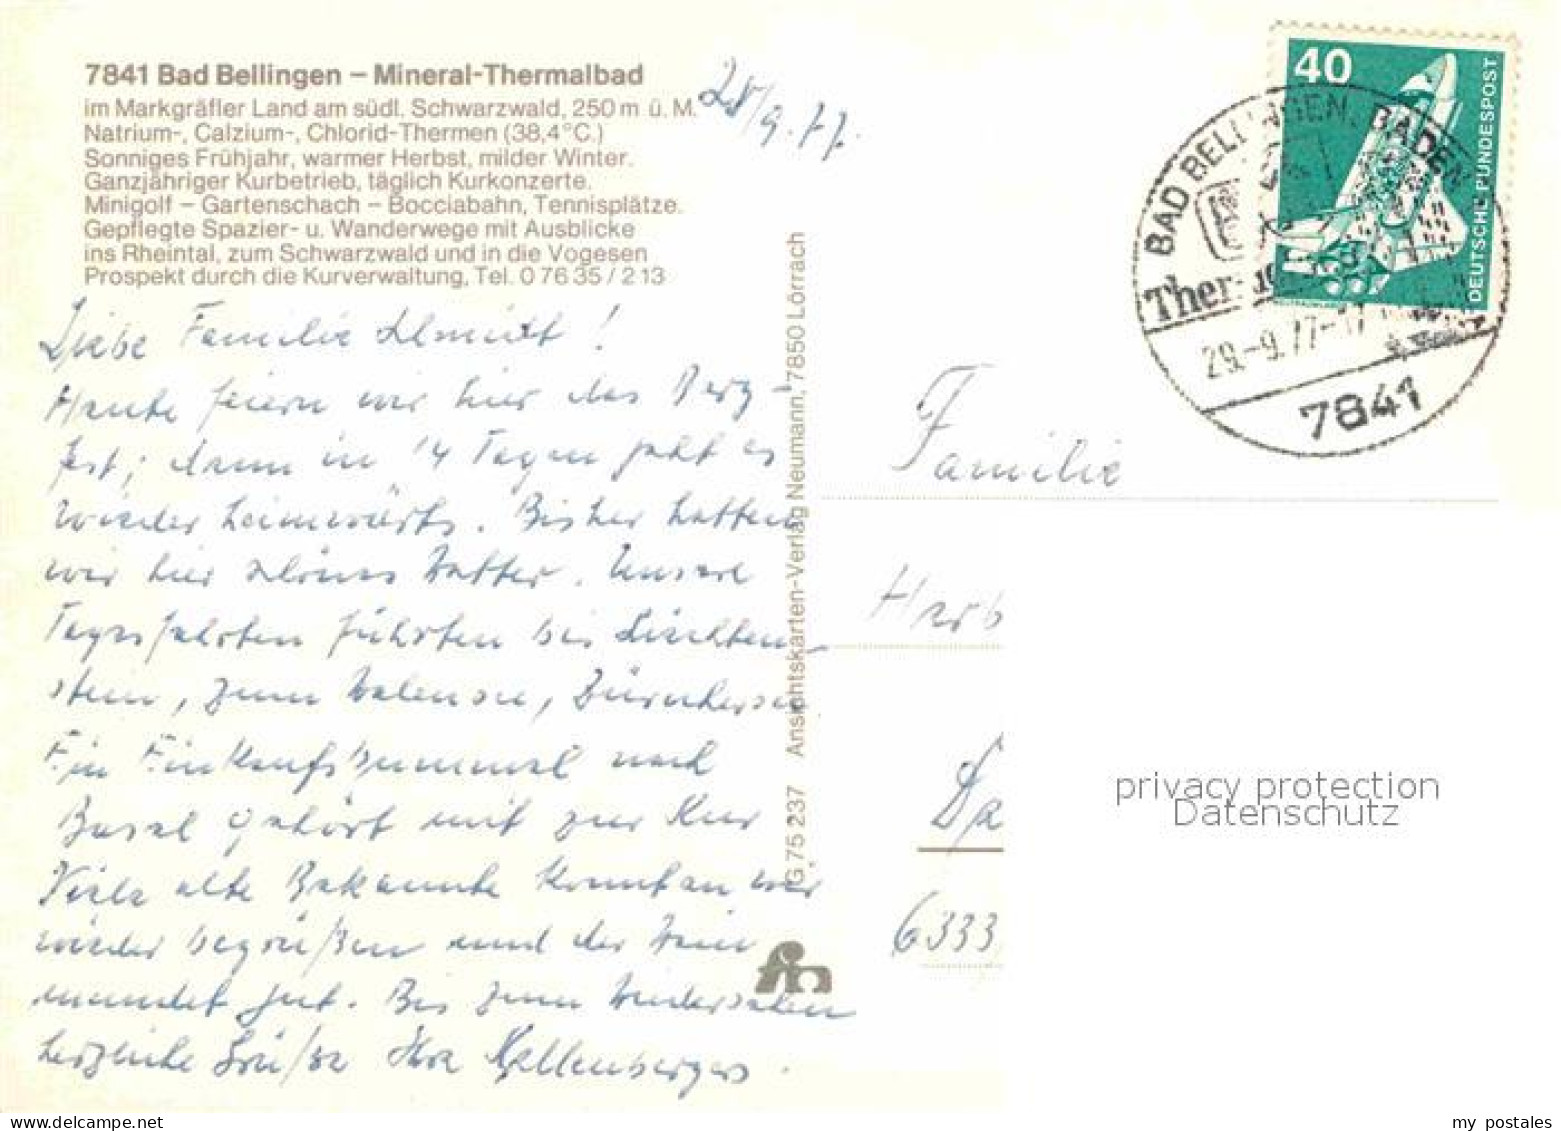 7841 Bad Bellingen – Mineral-Thermalbad
im Markgräfler Land am südl. Schwarzwald, 250 m ü. M.
Natrium-, Calzium-, Chlorid-Thermen (38,4°C.)
Sonniges Frühjahr, warmer Herbst, milder Winter.
Ganzjähriger Kurbetrieb, täglich Kurkonzerte.
Minigolf – Gartenschach – Bocciabahn, Tennisplätze.
Gepflegte Spazier- u. Wanderwege mit Ausblicke
ins Rheintal, zum Schwarzwald und in die Vogesen
Prospekt durch die Kurverwaltung, Tel. 0 76 35 / 2 13
28/9.77.
Liebe Familie Schmidt!
Heute feiern wir hier das Berg-
fest; denn in 14 Tagen geht es
wieder heimwärts. Bisher hatten
wir hier schönes Wetter. Unsere
Tagesfahrten führten bis Liechten-
stein, zum Walensee, Zürichersee
Ein Einkaufsbummel nach
Basel gehört mit zur Kur
Viele alte Bekannte konnten wir
wieder begrüßen und der Wein
mundet gut. Bis zum Wiedersehen
herzliche Grüße Ihre Kellenbergers.
G 75 237 Ansichtskarten-Verlag Neumann, 7850 Lörrach
fn
40
DEUTSCHE BUNDESPOST
BAD BELLINGEN, BADEN
29.-9.77-17
7841
Familie
Harb
Da
6333
privacy protection
Datenschutz
my postales